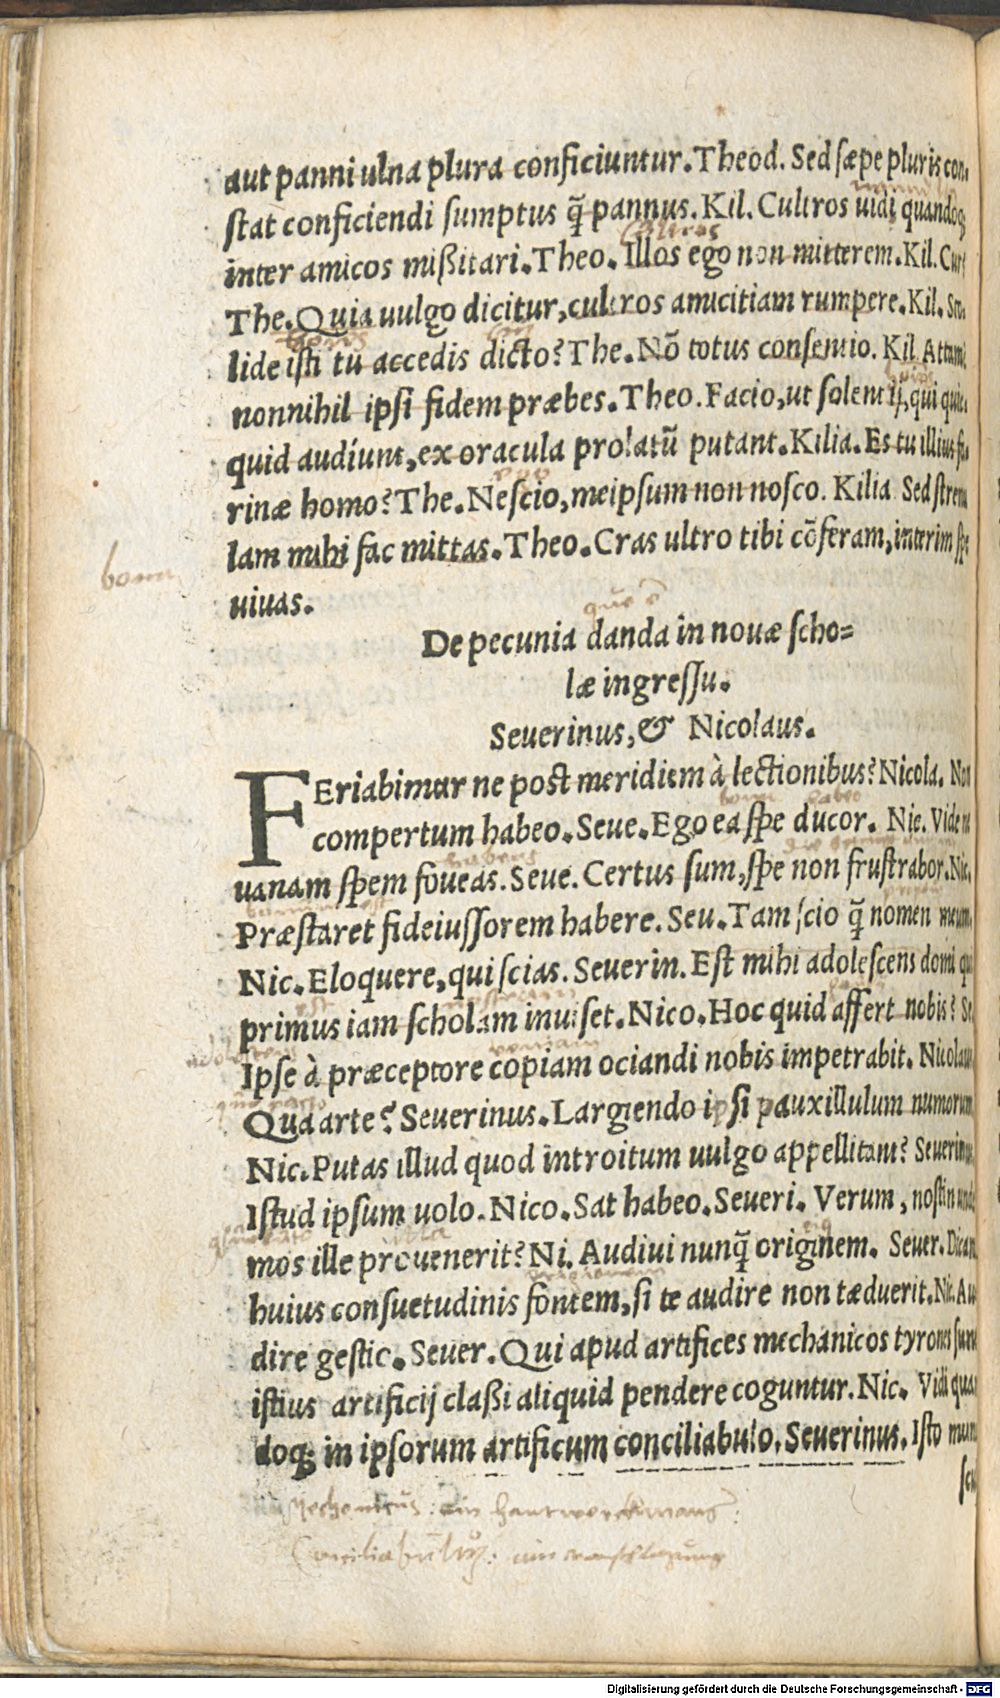 aut panni ulna plura conficiuntur. Theod. Sed sæpe pluris con-
stat conficiendi sumptus q̃ pannus. Kil. Cultros uidi quandoq;
inter amicos mißitari. Theo. Illos ego non mitterem. Kil. Cur?
The. Quia uulgo dicitur, cultros amicitiam rumpere. Kil. So-
lide isti tu accedis dicto? The. Nõ totus consentio. Kil. Attamẽ
nonnihil ipsi fidem præbes. Theo. Facio, ut solent ij, qui quic-
quid audiunt, ex oracula prolatũ putant. Kilia. Es tu illius fa-
rinæ homo? The. Nescio, meipsum non nosco. Kilia Sed strenu
lam mihi fac mittas. Theo. Cras ultro tibi cõferam, interim spe
uiuas.
bonum
De pecunia danda in nouæ scho=
læ ingressu.
Seuerinus, & Nicolaus.
FEriabimur ne post meridiem à lectionibus? Nicola. Non
compertum habeo. Seue. Ego ea spe ducor. Nic. Vide ne
uanam spem foueas. Seue. Certus sum, spe non frustrabor. Nic.
Præstaret fideiussorem habere. Seu. Tam scio q̃ nomen meum.
Nic. Eloquere, qui scias. Seuerin. Est mihi adolescens domi qui
primus iam scholam inuiset. Nico. Hoc quid affert nobis? Se.
Ipse à præceptore copiam ociandi nobis impetrabit. Nicolaus
Qua arte? Seuerinus. Largiendo ipsi pauxillulum numorum
Nic. Putas illud quod introitum uulgo appellitant? Seuerinus.
Istud ipsum uolo. Nico. Sat habeo. Seueri. Verum, nostin unde
mos ille prouenerit? Ni. Audiui nunq̃ originem. Seuer. Dicam
huius consuetudinis fontem, si te audire non tæduerit. Nic. Au
dire gestic. Seuer. Qui apud artifices mechanicos tyrones sunt
istius artificij claßi aliquid pendere coguntur. Nic. Vidi quan
doq; in ipsorum artificum conciliabulo. Seuerinus. Isto mun
Mechanicus: ein hantwerckmans:
Conciliabulum: ein
Digitalisierung gefördert durch die Deutsche Forschungsgemeinschaft - DFG